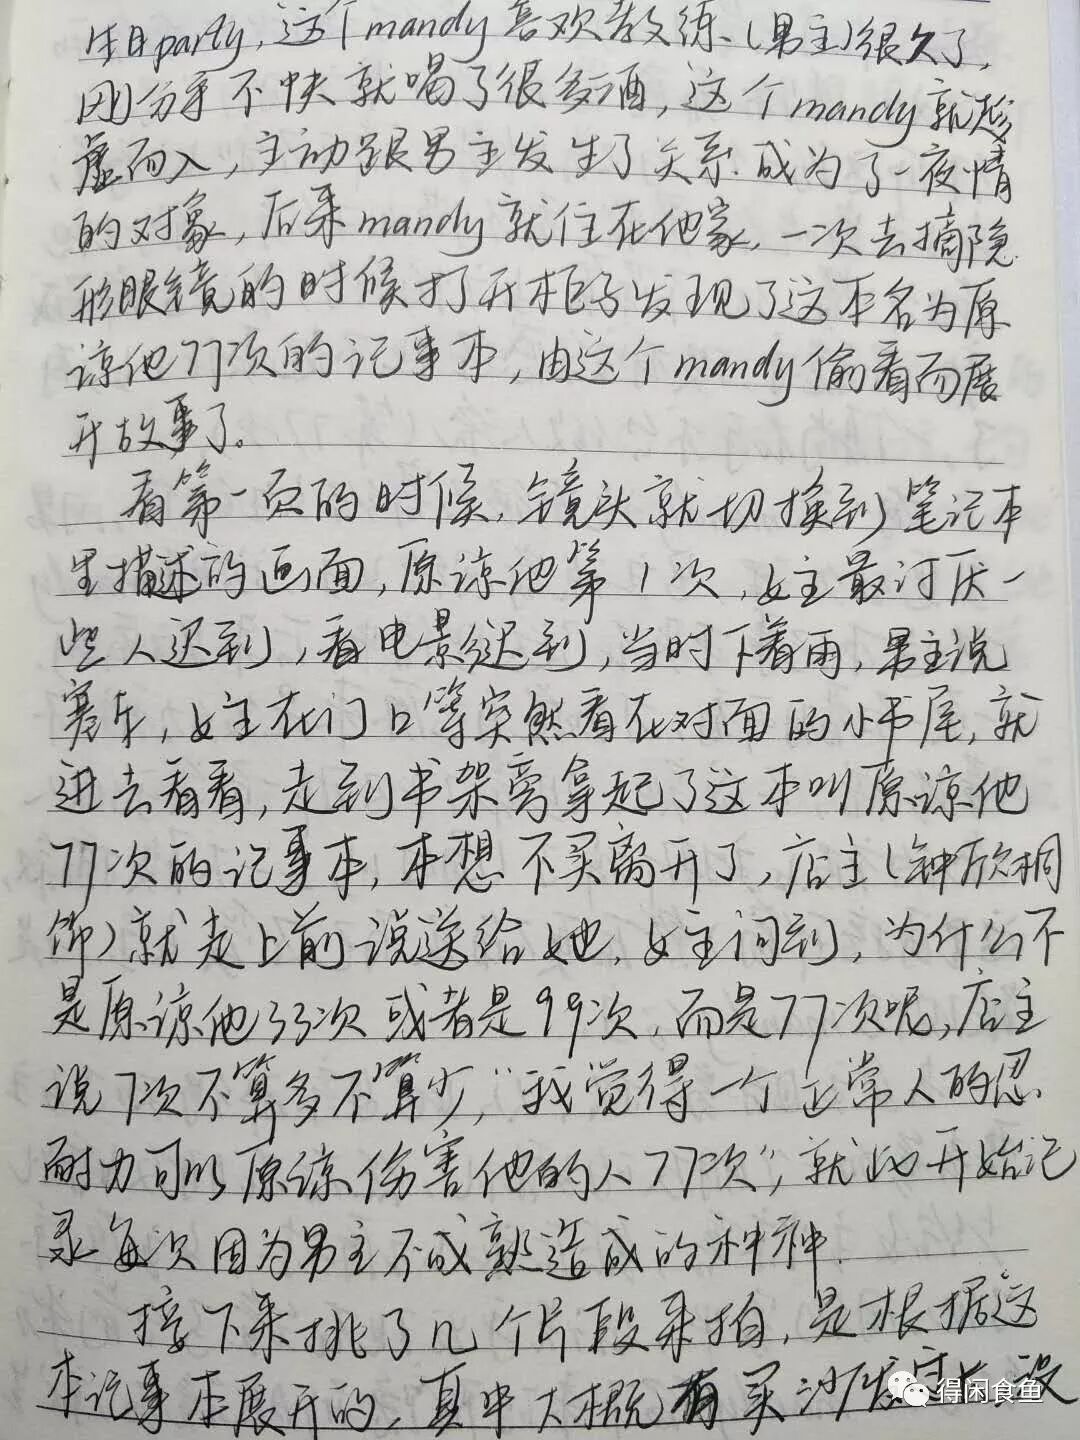 生日party,这个mandy喜欢教练(男主)很久了,
刚分手不快就喝了很多酒,这个mandy就趁
虚而入,主动跟男主发生了关系.成为了一夜情
的对象,后来mandy就住在他家,一次去摘隐
形眼镜的时候打开柜子发现了这本名为原
谅他77次的记事本,由这个mandy偷看而展
开故事了。
看第一页的时候,镜头就切换到笔记本
里描述的画面,原谅他第1次,女主最讨厌一
些人迟到,看电影迟到,当时下着雨,男主说
塞车,女主在门口等突然看在对面的小书屋,就
进去看看,走到书架旁拿起了这本叫原谅他
77次的记事本,本想不买离开了,店主(钟欣桐
饰)就走上前说送给她,女主问到,为什么不
是原谅他33次或者是99次,而是77次呢,店主
说7次不算多不算少,“我觉得一个正常人的忍
耐力可以原谅伤害他的人77次”,就此开始记
录每次因为男主不成熟造成的种种.
接下来挑了几个片段来拍,是根据这
本记事本展开的,其中大概有买沙发 没
得闲食鱼